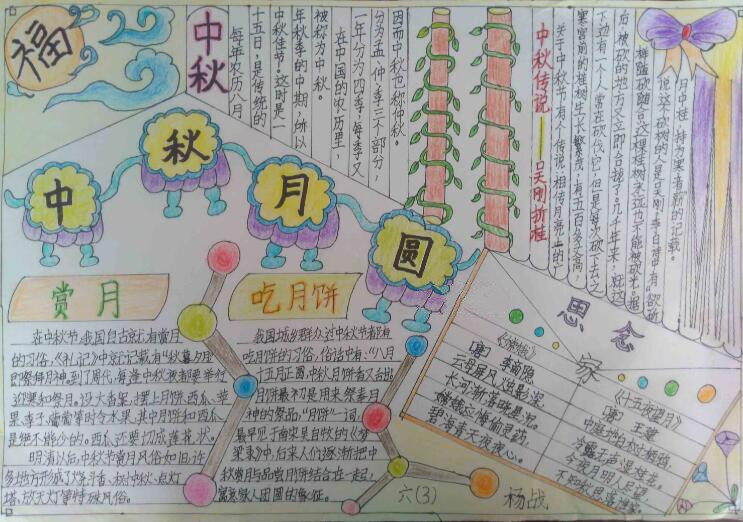 福
中秋
每年农历八月
十五日,是传统的
中秋佳节。这时是一
年秋季的中期,所以
被称为中秋。
在中国的农历里,
一年分为四季,每季又
分为孟、仲、季三个部分,
因而中秋也称仲秋。
中秋传说——吴刚折桂
关于中秋节有个传说:相传月亮上的广
寒宫前的桂树生长繁茂,有五百多丈高,
下边有一个人常在砍伐它,但是每次砍下去之
后,被砍的地方又立即合拢了。几千年来,就这
样随砍随合,这棵桂树永远也不能被砍光。据
说这个砍树的人是吴刚,李白诗中有"欲斫
月中桂,持为寒者薪"的记载。
中秋月圆
赏月
在中秋节,我国自古就有赏月
的习俗,《礼记》中就记载有"秋暮夕月"
即祭拜月神。到了周代,每逢中秋夜都要举行
迎寒和祭月。设大香案,摆上月饼、西瓜、苹
果、李子、葡萄等时令水果,其中月饼和西瓜
是绝不能少的。西瓜还要切成莲花状。
明清以后,中秋节赏月风俗如旧,许
多地方形成了烧斗香、树中秋、点灯
塔、放天灯等特殊风俗。
吃月饼
我国城乡群众过中秋节都有
吃月饼的习俗,俗话中有:"八月
十五月正圆,中秋月饼香又甜"。
月饼最初是用来祭奉月
神的祭品,"月饼"一词,
最早见于南宋吴自牧的《梦
粱录》中,后来人们逐渐把中
秋赏月与品尝月饼结合在一起,
寓意家人团圆的象征。
思念家
《嫦娥》
[唐] 李商隐
云母屏风烛影深,
长河渐落晓星沉。
嫦娥应悔偷灵药,
碧海青天夜夜心。
《十五夜望月》
[唐] 王建
中庭地白树栖鸦,
冷露无声湿桂花。
今夜月明人尽望,
不知秋思落谁家。
六(3) 杨战